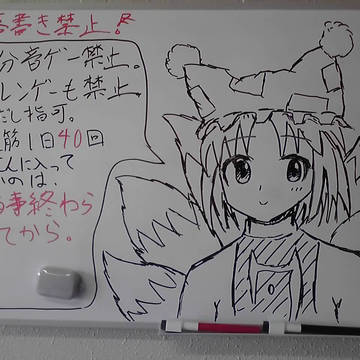 書き禁止!
分音ゲー禁止。
レンゲーも禁止
だし指可。
筋1日40回
たんに入って
いのは、
事終わら
てから。